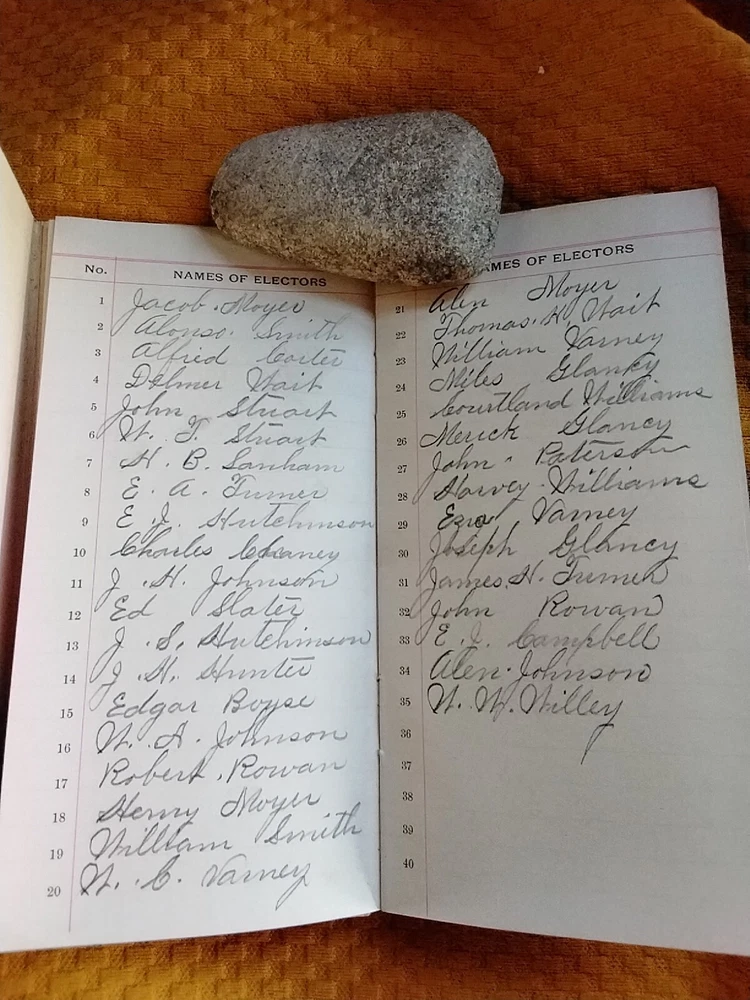 No. NAMES OF ELECTORS
1 Jacob Moyer
2 Alonso Smith
3 Alfred Carter
4 Delmer Wait
5 John Stuart
6 W. T. Stuart
7 H. B. Lanham
8 E. A. Turner
9 E. J. Hutchinson
10 Charles
11 J. H. Johnson
12 Ed Slater
13 J. S. Hutchinson
14 J. H. Hunter
15 Edgar Boyse
16 W. A. Johnson
17 Robert Rowan
18 Henry Moyer
19 William Smith
20 W. C. Varney
AMES OF ELECTORS
21 Alen Moyer
22 Thomas H. Wait
23 William Varney
24 Miles Glanky
25 Courtland Williams
26 Merick Glancy
27 John Paterson
28 Harvey Williams
29 Ezra Varney
30 Joseph Glancy
31 James H. Turner
32 John Rowan
33 E. J. Campbell
34 Alen Johnson
35 W. W. Willey
36
37
38
39
40